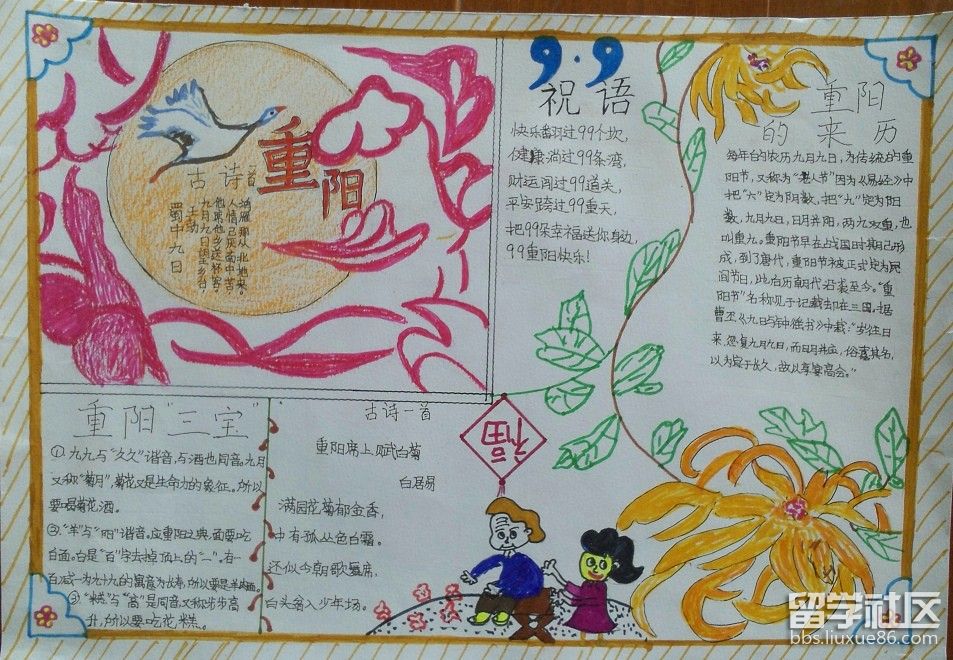 重阳
古诗首
蜀中九日
王勃
九月九日望乡台
他席他乡送杯客,
人情已厌南中苦,
鸿雁那从北地来。
9·9
祝语
快乐翻过99个坎,
健康淌过99条湾,
财运闯过99道关,
平安跨过99重天,
把99朵幸福送你身边,
99重阳快乐!
重阳
的来历
每年的农历九月九日,为传统的重
阳节,又称为“老人节”因为《易经》中
把“六”定为阴数,把“九”定为阳
数,九月九日,日月并阳,两九双重,也
叫重九。重阳节早在战国时期已形
成,到了唐代,重阳节被正式定为民
间节日,此后历朝代沿袭至今。“重
阳节”名称见于记载却在三国。据
曹丕《九日与钟繇书》中载:“岁往月
来,忽复九月九日,而日月并应,俗嘉其名,
以为宜于长久,故以享宴高会。”
重阳“三宝”
①九九与“久久”谐音,与酒也同音。九月
又称“菊月”,菊花又是生命力的象征。所以
要喝菊花酒。
②“羊”与“阳”谐音。应重阳之典,面要吃
白面。白是“百”字去掉顶上的“一”。有一
百减一为九十九的寓意为长寿,所以要是羊肉面。
③“糕”与“高”是同音又称步步高
升,所以要吃花糕。
古诗一首
重阳席上赋白菊
白居易
满园花菊郁金香,
中有孤丛色白霜。
还似今朝歌舞席,
白头翁入少年场。
福
留学社区
bbs.liuxue86.com